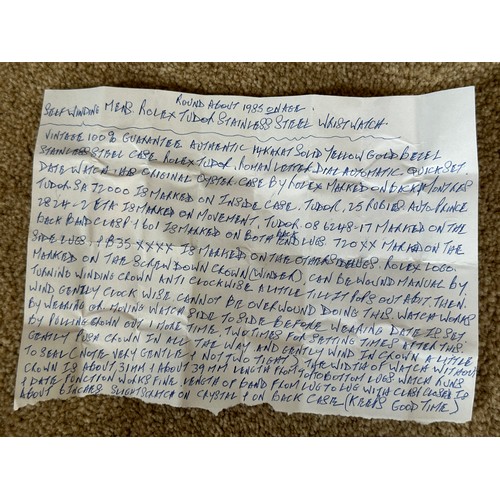 ROUND ABOUT 1985 ON AGE.
SELF WINDING MENS. ROLEX TUDOR STAINLESS STEEL WRIST WATCH.
VINTAGE 100% GUARANTEE AUTHENTIC 14KARAT SOLID YELLOW GOLD BEZEL
STAINLESS STEEL CASE ROLEX TUDOR, ROMAN LETTER DIAL AUTOMATIC QUICK SET
DATE WATCH. HAS ORIGINAL OYSTER CASE BY ROLEX MARKED ON BACK MONTRES
TUDOR SA 72000 IS MARKED ON INSIDE CASE. TUDOR, 25 RUBIES AUTO PRINCE
2824-2 ETA IS MARKED ON MOVEMENT. TUDOR 086248-17 MARKED ON THE
BACK BAND CLASP 1 601 IS MARKED ON BOTH BACK END LUGS 720XX MARKED ON THE
SIDE LUGS, 1 B35-XXXX IS MARKED ON THE OTHER SIDE LUGS. ROLEX LOGO.
MARKED ON THE SCREW DOWN CROWN (WINDER). CAN BE WOUND MANUAL BY
TURNING WINDING CROWN ANTI CLOCKWISE A LITTLE TILL IT POPS OUT A BIT. THEN
WIND GENTLY CLOCK WISE CANNOT BE OVERWOUND DOING THIS. WATCH WORKS
BY WEARING OR MOVING WATCH SIDE TO SIDE BEFORE WEARING DATE IS SET
BY PULLING CROWN OUT 1 MORE TIME. TWO TIMES FOR SETTING TIMES AFTER THIS
GENTLY PUSH CROWN IN ALL THE WAY AND GENTLY WIND IN CROWN A LITTLE
TO SEAL (NOTE VERY GENTLE, NOT TWO TIGHT) THE WIDTH OF WATCH WITHOUT
CROWN IS ABOUT 31MM & ABOUT 39 MM LENGTH FROM TOP TO BOTTOM LUGS WATCH RUNS
& DATE FUNCTION WORKS FINE LENGTH OF BAND FROM LUG TO LUG WITH CLASP CLOSED IS
ABOUT 6 INCHES SLIGHT SCRATCH ON CRYSTAL & ON BACK CASE (KEEPS GOOD TIME)